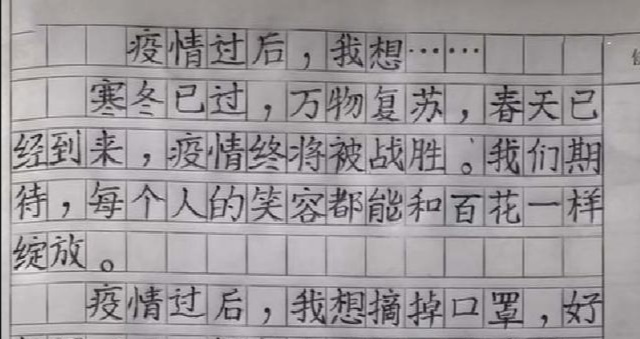 疫情过后，我想……
寒冬已过，万物复苏，春天已
经到来，疫情终将被战胜。我们期
待，每个人的笑容都能和百花一样
绽放。
疫情过后，我想摘掉口罩，好